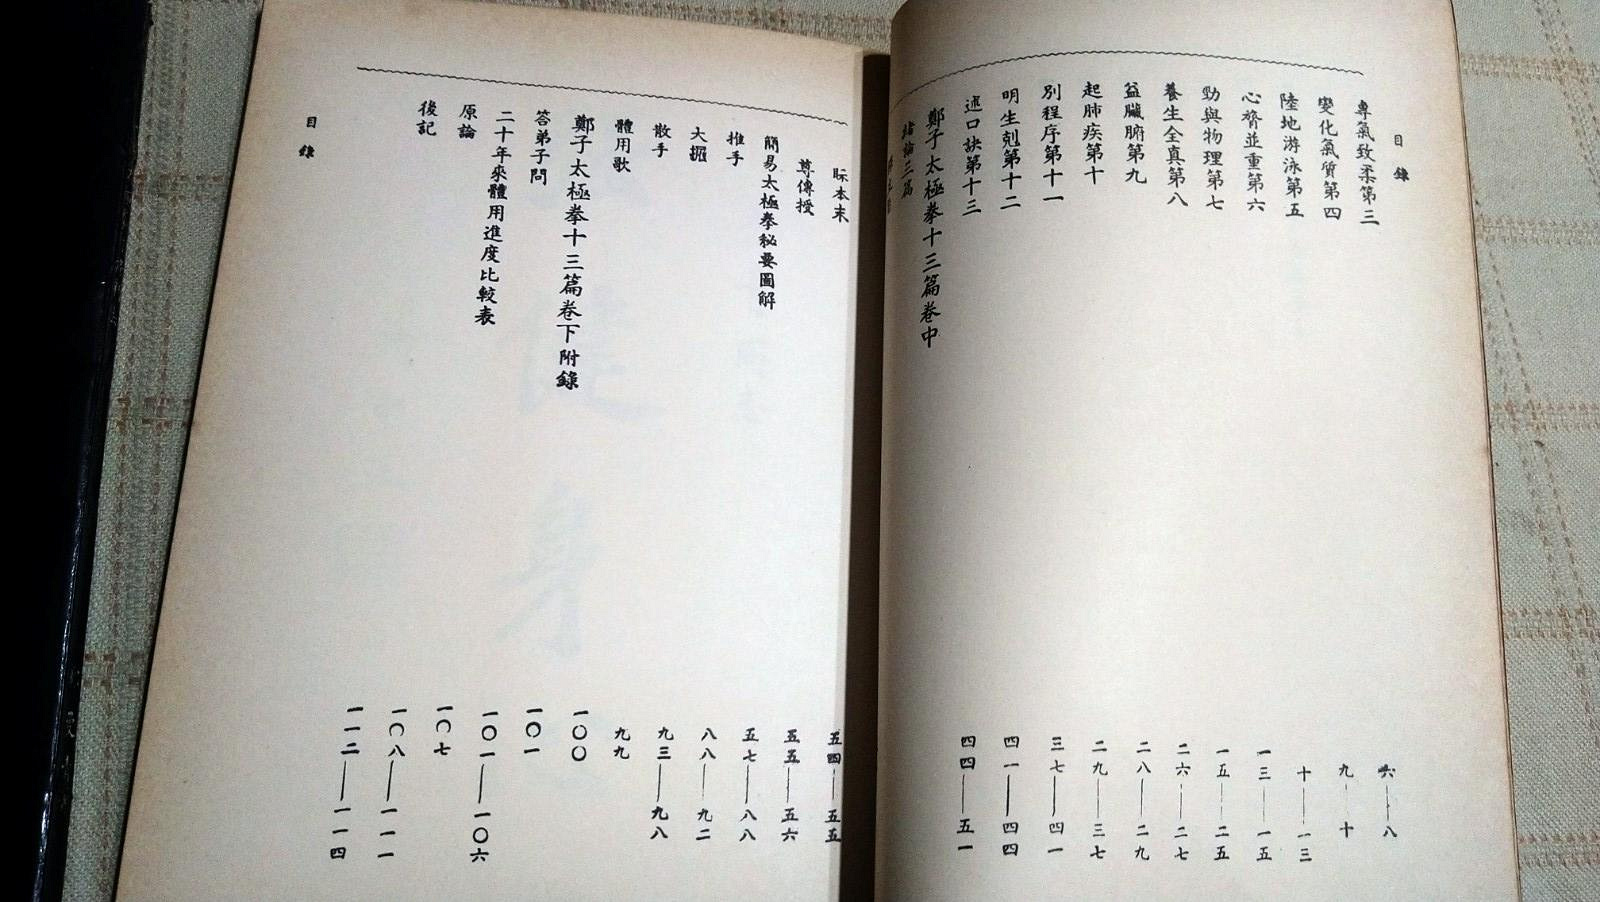 目錄
專氣致柔第三 六——八
變化氣質第四 九——十
陸地游泳第五 十——一三
心膂並重第六 一三——一五
勁與物理第七 一五——二五
養生全真第八 二六——二七
益臟腑第九 二八——二九
起肺疾第十 二九——三七
別程序第十一 三七——四一
明生剋第十二 四一——四四
述口訣第十三 四四——五一
鄭子太極拳十三篇卷中
緒論三篇
眎本末 五四——五五
尊傳授 五五——五六
簡易太極拳秘要圖解 五七——八八
推手 八八——九二
大攦 九三——九八
散手 九九
體用歌 一〇〇
鄭子太極拳十三篇卷下附錄 一〇一
答弟子問 一〇一——一〇六
二十年來體用進度比較表 一〇七
原論 一〇八——一一一
後記 一一二——一一四
目錄